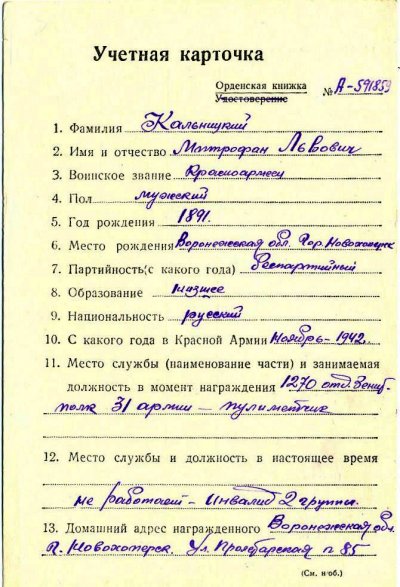 Учетная карточка
Орденская книжка
Удостоверение № А-591859
1. Фамилия Кальницкий
2. Имя и отчество Митрофан Львович
3. Воинское звание Красноармеец
4. Пол мужский
5. Год рождения 1891
6. Место рождения Воронежская обл. гор. Новохоперск
7. Партийность (с какого года) беспартийный
8. Образование низшее
9. Национальность русский
10. С какого года в Красной Армии Ноябрь-1942.
11. Место службы (наименование части) и занимаемая
должность в момент награждения 1270 отд. зенит.
полк 31 армии – пулиметчик
12. Место службы и должность в настоящее время
не работает – инвалид 2 группы
13. Домашний адрес награжденного Воронежская обл.
г. Новохоперск. ул. 85
(См. н/об.)